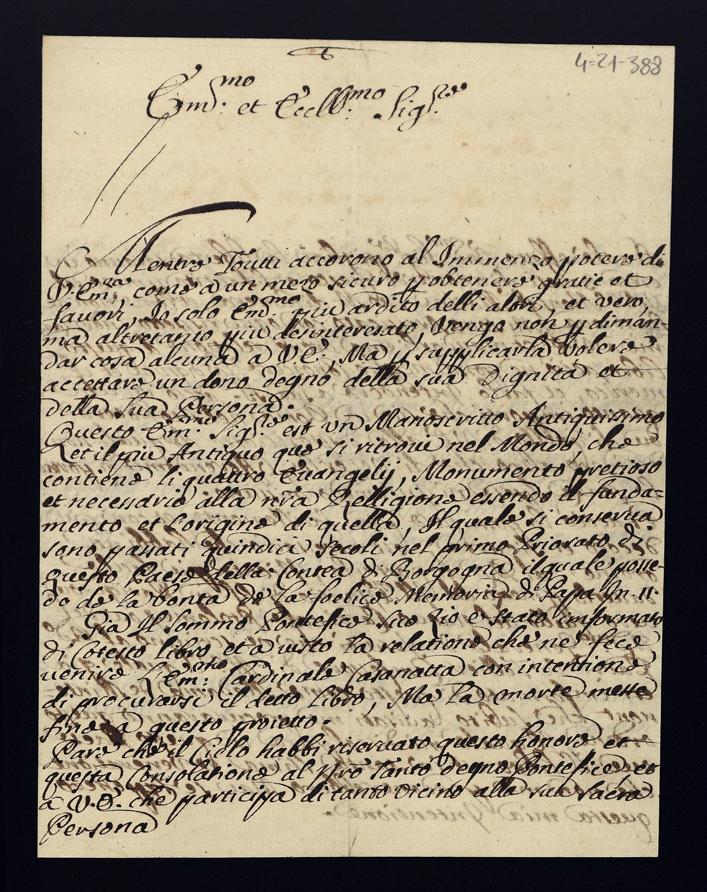 4-21-388
Em.mo et Eccll.mo Sig.re
Mentre Toutti accorono al Immenzo potere di
V. Em.za, come a un mezo sicuro p obtenere gratie et
favori, Io solo Em.mo piu ardito delli altri, et vero
ma altretanto piu desinteresato, vengo non p diman-
dar cosa alcuna a V.E., Ma p supplicarla volere
accettare un dono degno della sua Dignita et
della Sua Persona.
Questo Em.mo Sig.re est un Manoscritto Antiquissimo
et il piu Antiquo que si ritrovi nel Mondo, che
contiene li quattro Evangelij, Monumento pretioso
et necessario alla nra Relligione essendo il funda=
mento et L'origine di quella, Il quale si conserva
sono passati quindici secoli nel primo Priorato di
questo Paese della Contea d Borgogna il quale posse-
do de la bonta de la foelice Memoria d Papa In. 11.
Gia Il Sommo Pontefice suo Zio e stato imformato
di Cotesto libro et a visto la relatione che ne fece
venire L'Em.mo Cardinale Casanatta con intentione
di procurarsi il detto libro, Ma la morte messe
fine a questo proietto.
Pare che il Cielo habbi riservato questo honore et
questa Consolatione al nro Tanto degno Pontefice et
a V.E. che participa di tanto vicino alla sua Sacra
Persona